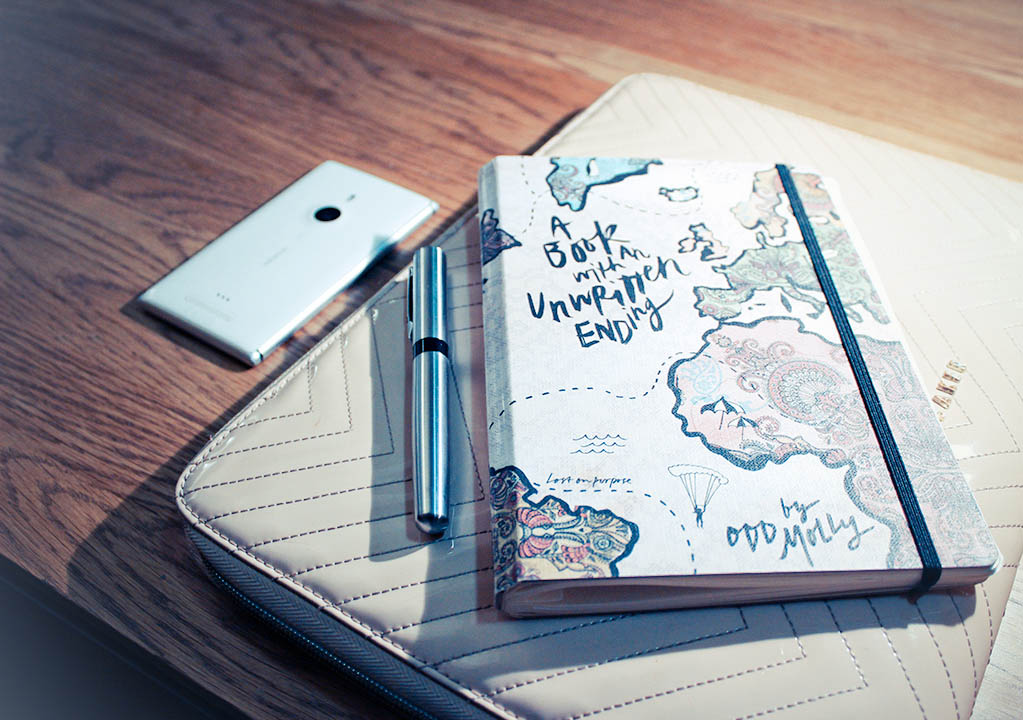 A
Book
with an
Unwritten
Ending
Lost on purpose
by
ODD
Molly